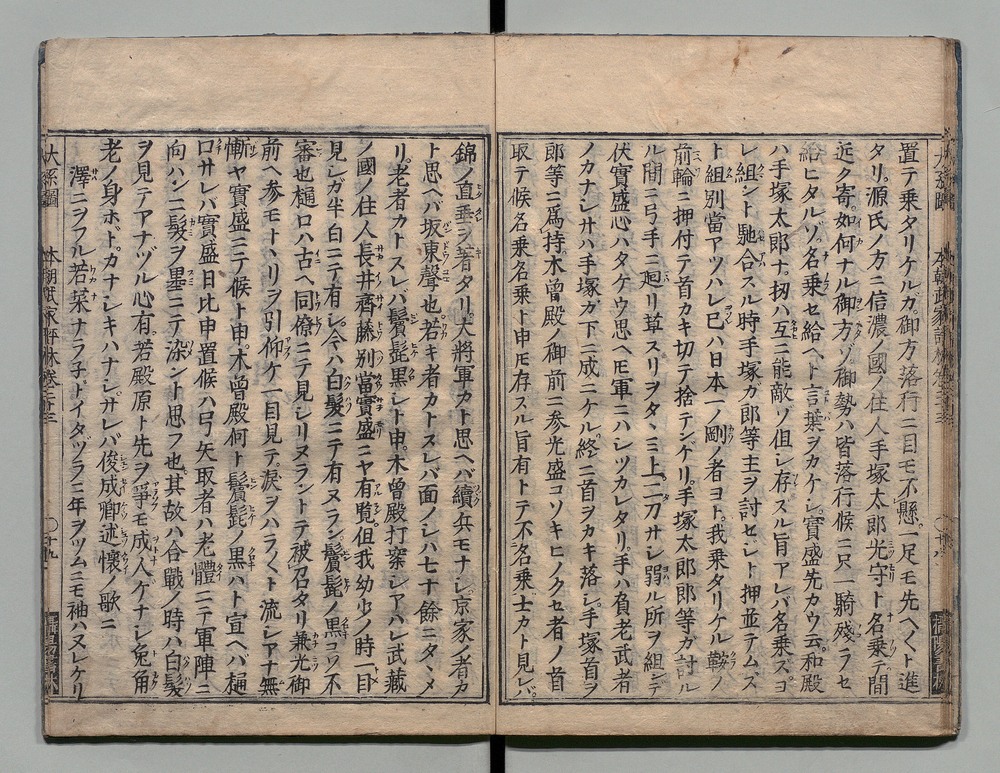 置テ乗タリケルカ。御方落行ニ目モ不懸。一足モ先ヘ〱ト進
タリ。源氏ノ方ニ信濃ノ國ノ住人手塚太郎光守ト名乗テ間
近ク寄。如何ナル御方ゾ。御勢ハ皆落行候ニ只一騎殘ラセ
給ヒタルゾ。名乗セ給ヘト言葉ヲカケレ。實盛先カウ云和殿
ハ手塚太郎ナ。扨ハ互ニ能敵ソ但レ存スル旨アレバ名乗ズヨ
レ組ント馳合スル時手塚ガ郎等主ヲ討セレト押並テムズ
ト組別當アツハレ已ハ日本一ノ剛ノ者ヨト。我乗タリケル鞍ノ
前輪ニ押付テ首カキ切テ捨テンゲリ。手塚太郎郎等ガ討ル
ル間ニ弓手ニ廻リ草スリヲタヽミ上二刀サレ弱ル所ヲ組デ
伏實盛心ハタケウ思ヘ𪜈軍ニハレツカレタリ。手ハ負老武者
ノカナレサハ手塚ガ下ニ成ニケル終ニ首ヲカキ落レ。手塚首ヲ
郎等ニ爲持。木曾殿ノ御前ニ参光盛コソキヒノクセ者ノ首
取テ候名乗名乗ト申𪜈存スル旨有トテ不名乗士カト見レバ。
錦ノ直垂ヲ著タリ。大將軍カト思ヘバ續兵モナレ。京家ノ者カ
ト思ヘバ坂東聲也。若キ者カトスレバ面ノレハ七十餘ニタヽメ
リ。老者カトスレバ鬢髭黒レト申。木曾殿打案レアハレ武藏
ノ國ノ住人長井齊藤別當實盛ニヤ有覧。但我幼少ノ時一目
見レガ半白ニテ有レ。今ハ白髪ニテ有ヌラン鬢髭ノ黒コソ不
審也樋口ハ古ヘ同僚ニテ見レリヌラントテ被召タリ兼光御
前ヘ参モトヽリヲ引仰ケ一目見テ。涙ヲハラ〱ト流レアナ無
慚ヤ實盛ニテ候ト申。木曾殿何ト鬢髭ノ黒ハト宣ヘバ樋
口サレバ實盛日比申置候ハ弓矢取者ハ老體ニテ軍陣ニ
向ハンニ髪ヲ墨ニテ染ント思フ也。其故ハ合戰ノ時ハ白髪
ヲ見テアナヅル心有。若殿原ト先ヲ爭モ成人ケナレ兔角
老ノ身ホトカナレキハナレ。サレバ俊成卿述懷ノ歌ニ
澤ニヲフル若菜ナラ子トイタヅラニ年ヲツムニモ袖ハヌレケリ
本朝武家評林卷之廿三
十九